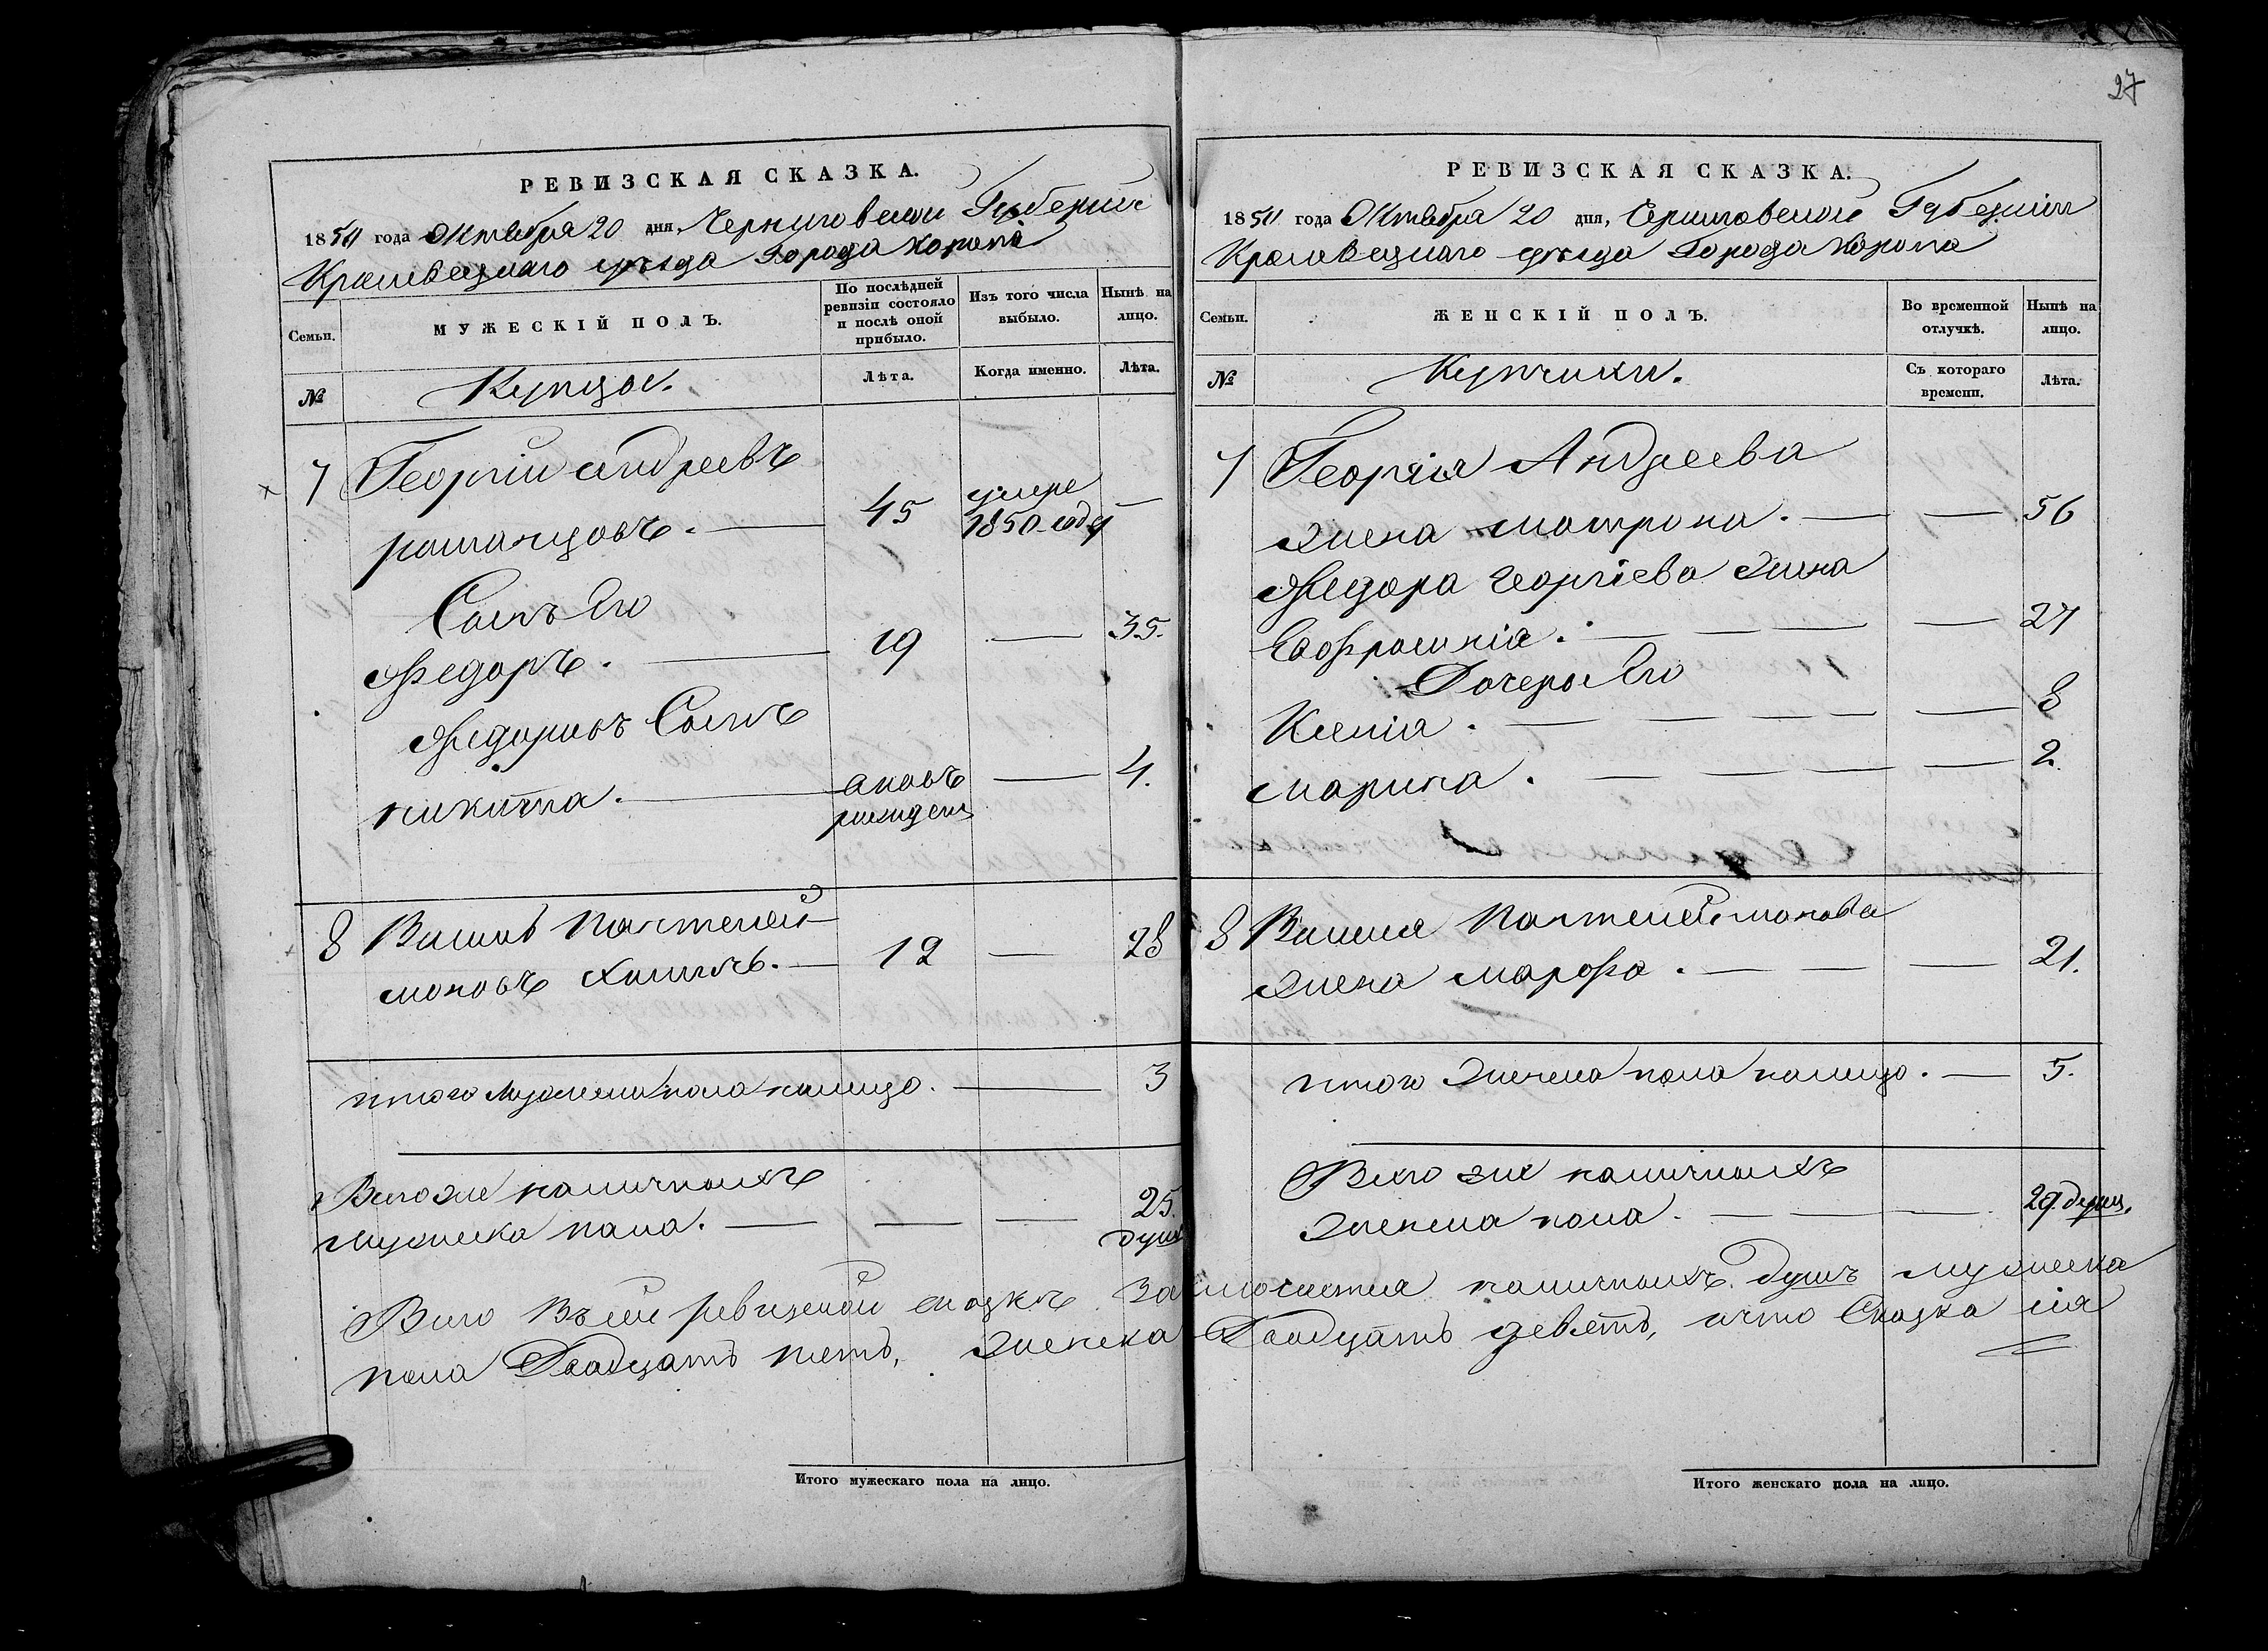 27
РЕВИЗСКАЯ СКАЗКА.
1850 года Октября 20 дня, Черниговской Губерніи
Кролевецкаго уѣзда Города Коропа
Семьи.
МУЖЕСКІЙ ПОЛЪ.
По послѣдней ревизіи состояло и послѣ оной прибыло.
Изъ того числа выбыло.
Нынѣ на лицо.
№
Купцы.
Лѣта.
Когда именно.
Лѣта.
7 Георгій Андреевъ
45 умре 1850 года —
Сынъ Его
Федоръ. — 19 — 35.
Федоровъ Сынъ
никита. — вновь рожденъ — 4.
8 Пантелей-
моновъ — 12 — 28
итого Мужеска пола налицо. — 3
Всего же наличныхъ
Мужеска пола. — — — 25. душъ
РЕВИЗСКАЯ СКАЗКА.
1850 года Октября 20 дня, Черниговской Губерніи
Кролевецкаго уѣзда Города Коропа
Семьи.
ЖЕНСКІЙ ПОЛЪ.
Во временной отлучкѣ.
Нынѣ на лицо.
№
Купчихи.
Съ котораго времени.
Лѣта.
7 Георгія Андреева
жена матрона. — — 56
Федора Георгіева жена
Евфросинія. — — — — 27
Дочери Его
Ксенія. — — — — — 8
марина. — — — — — 2.
8 Пантелеймонова
жена марфа. — — — 21.
итого женска пола налицо. — 5.
Всего же наличныхъ
женска пола. — — — 29. душъ.
Всего Въ сей ревизской сказке Заключается наличныхъ душъ мужеска
пола Двадцать пять, женска Двадцать девять, и что Сказка сія
Итого мужескаго пола на лицо.
Итого женскаго пола на лицо.